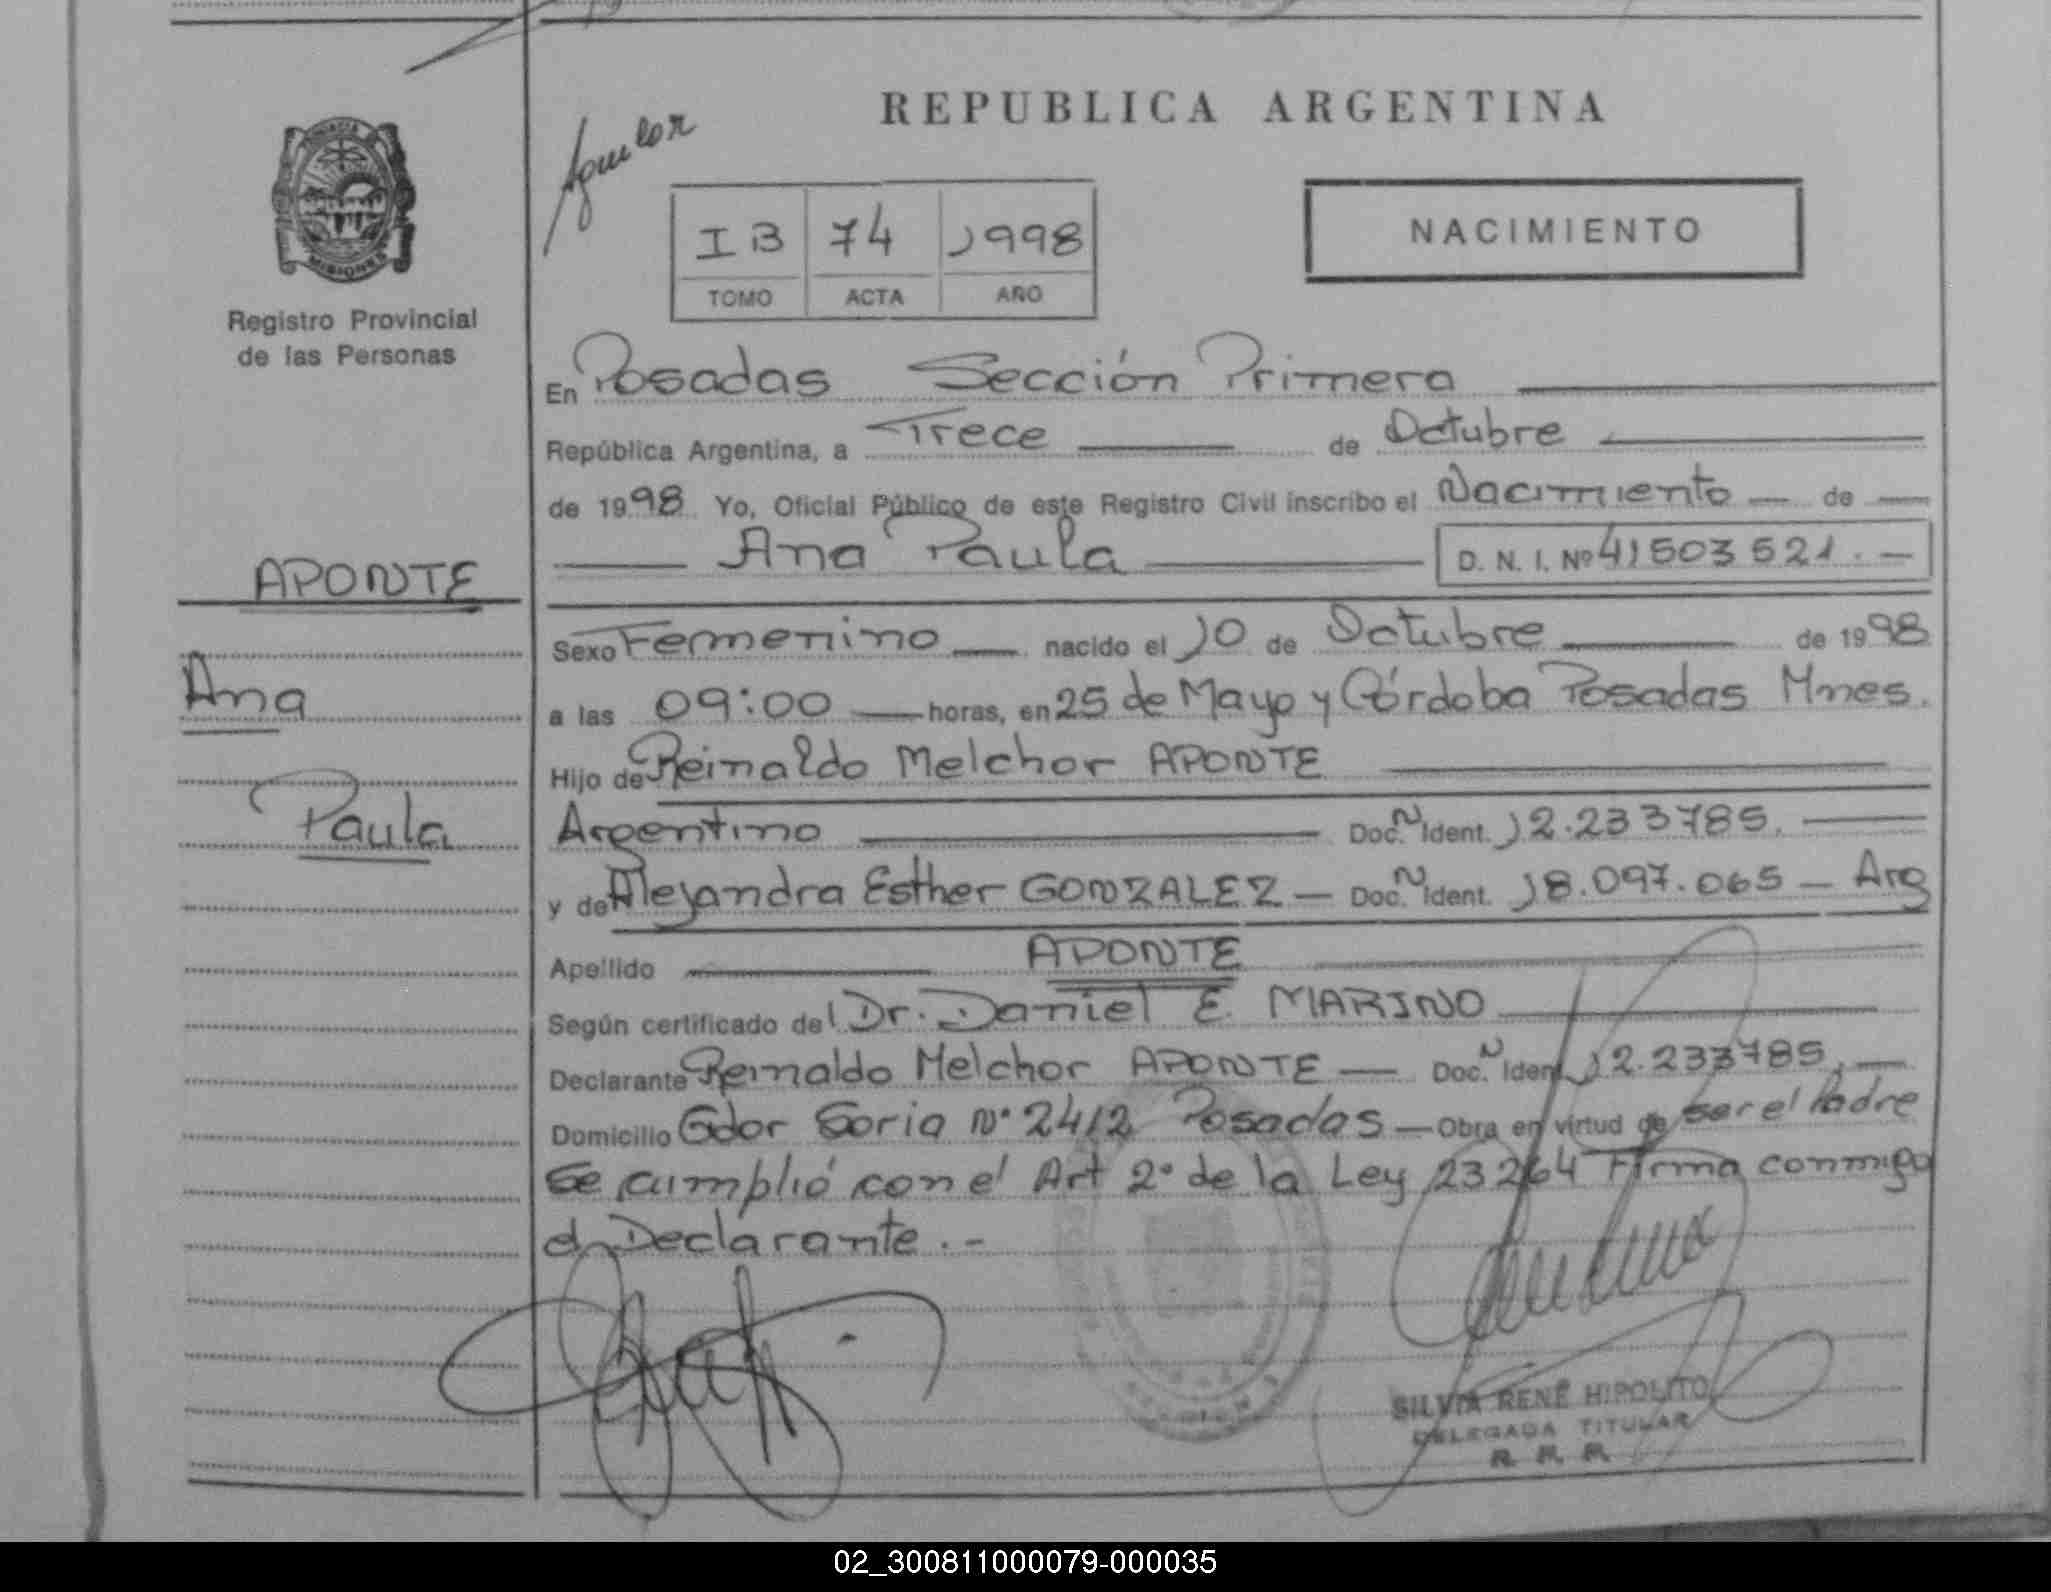 REPUBLICA ARGENTINA
Aguilar
IB 74 1998
TOMO ACTA AÑO
NACIMIENTO
MISIONES
Registro Provincial
de las Personas
En Posadas Sección Primera
República Argentina, a Trece de Octubre
de 1998 Yo, Oficial Público de este Registro Civil inscribo el Nacimiento de
Ana Paula D. N. I. Nº 41503521.
APONTE
Ana
Paula
Sexo Femenino nacido el 10 de Octubre de 1998
a las 09:00 horas, en 25 de Mayo y Córdoba Posadas Mnes.
Hijo de Reinaldo Melchor APONTE
Argentino Doc. N Ident. 12.233785.
y de Alejandra Esther GONZALEZ — Doc. N Ident. 18.097.065 — Arg
Apellido APONTE
Según certificado del Dr. Daniel E. MARINO
Declarante Reinaldo Melchor APONTE — Doc. N Ident. 12.233785.
Domicilio Gdor Soria Nº 2412 Posadas — Obra en virtud de ser el Padre
Se cumplió con el Art 2º de la Ley 23264 Firma conmigo
el Declarante . -
SILVIA RENÉ HIPOLITO
DELEGADA TITULAR
R. P. P.
02_300811000079-000035